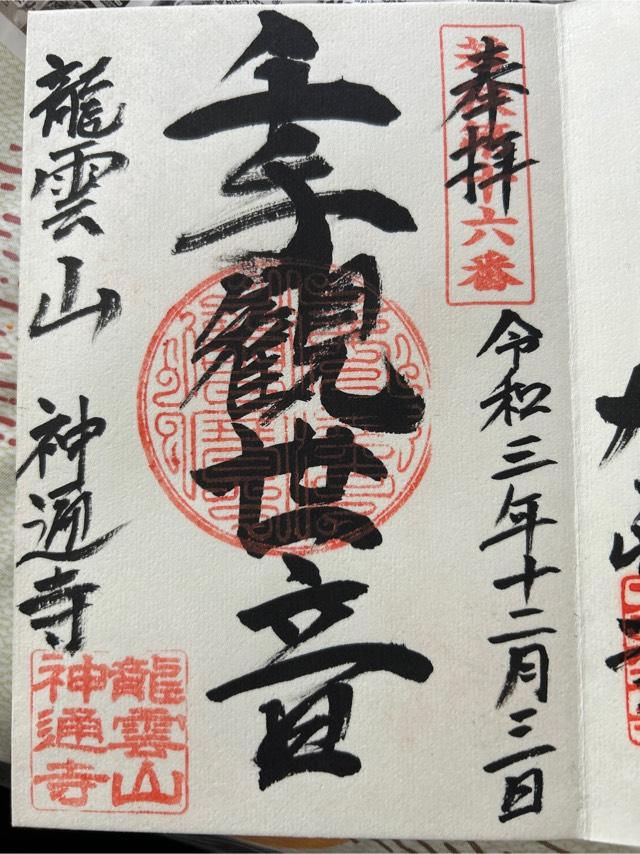 奉拝
六番
令和三年十二月三日
千手観世音
龍雲山 神通寺
龍雲山
神通寺